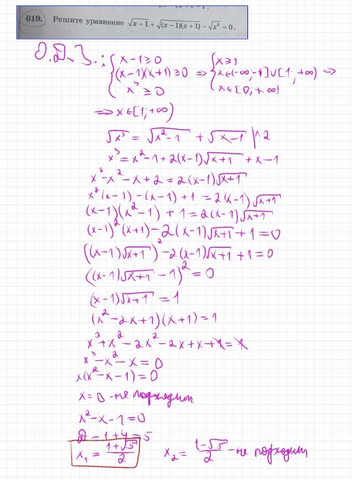 619. Решите уравнение √x−1 + √(x−1)(x+1) − √x³ = 0.
О.Д.З.: { x−1≥0 { x≥1
(x−1)(x+1)≥0 ⇒ x∈(−∞,−1]∪[1,+∞) ⇒
x³≥0 x∈[0,+∞)
⇒ x∈[1,+∞)
√x³ = √x²−1 + √x−1 |^2
x³ = x²−1+2(x−1)√x+1 + x−1
x³−x²−x+2=2(x−1)√x+1
x²(x−1)−(x−1)+1=2(x−1)√x+1
(x−1)(x²−1)+1=2(x−1)√x+1
(x−1)²(x+1)−2(x−1)√x+1+1=0
((x−1)√x+1)²−2(x−1)√x+1+1=0
((x−1)√x+1−1)²=0
(x−1)√x+1=1
(x²−2x+1)(x+1)=1
x³+x²−2x²−2x+x+1=1
x³−x²−x=0
x(x²−x−1)=0
x=0 - не подходит
x²−x−1=0
D=1+4=5
x₁ = 1+√5/2 x₂ = 1−√5/2 - не подходит